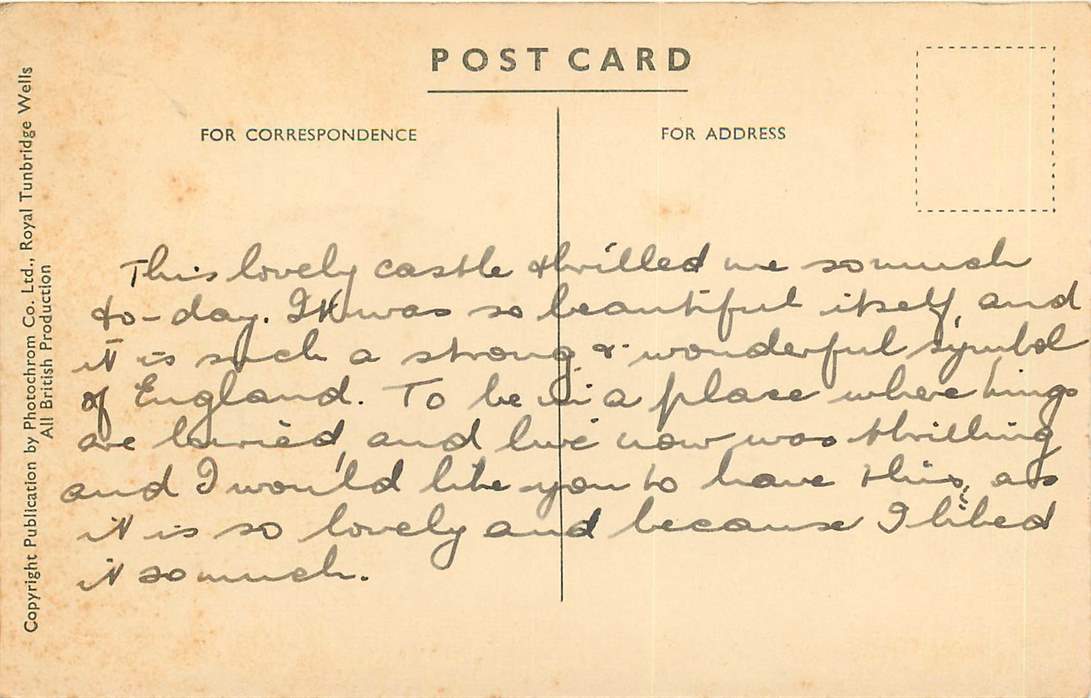 POST CARD
FOR CORRESPONDENCE
FOR ADDRESS
This lovely castle thrilled me so much
to-day. It was so beautiful itself, and
it is such a strong & wonderful symbol
of England. To be in a place where kings
are buried, and live now was thrilling
and I would like you to have this, as
it is so lovely and because I liked
it so much.
Copyright Publication by Photochrom Co. Ltd., Royal Tunbridge Wells
All British Production